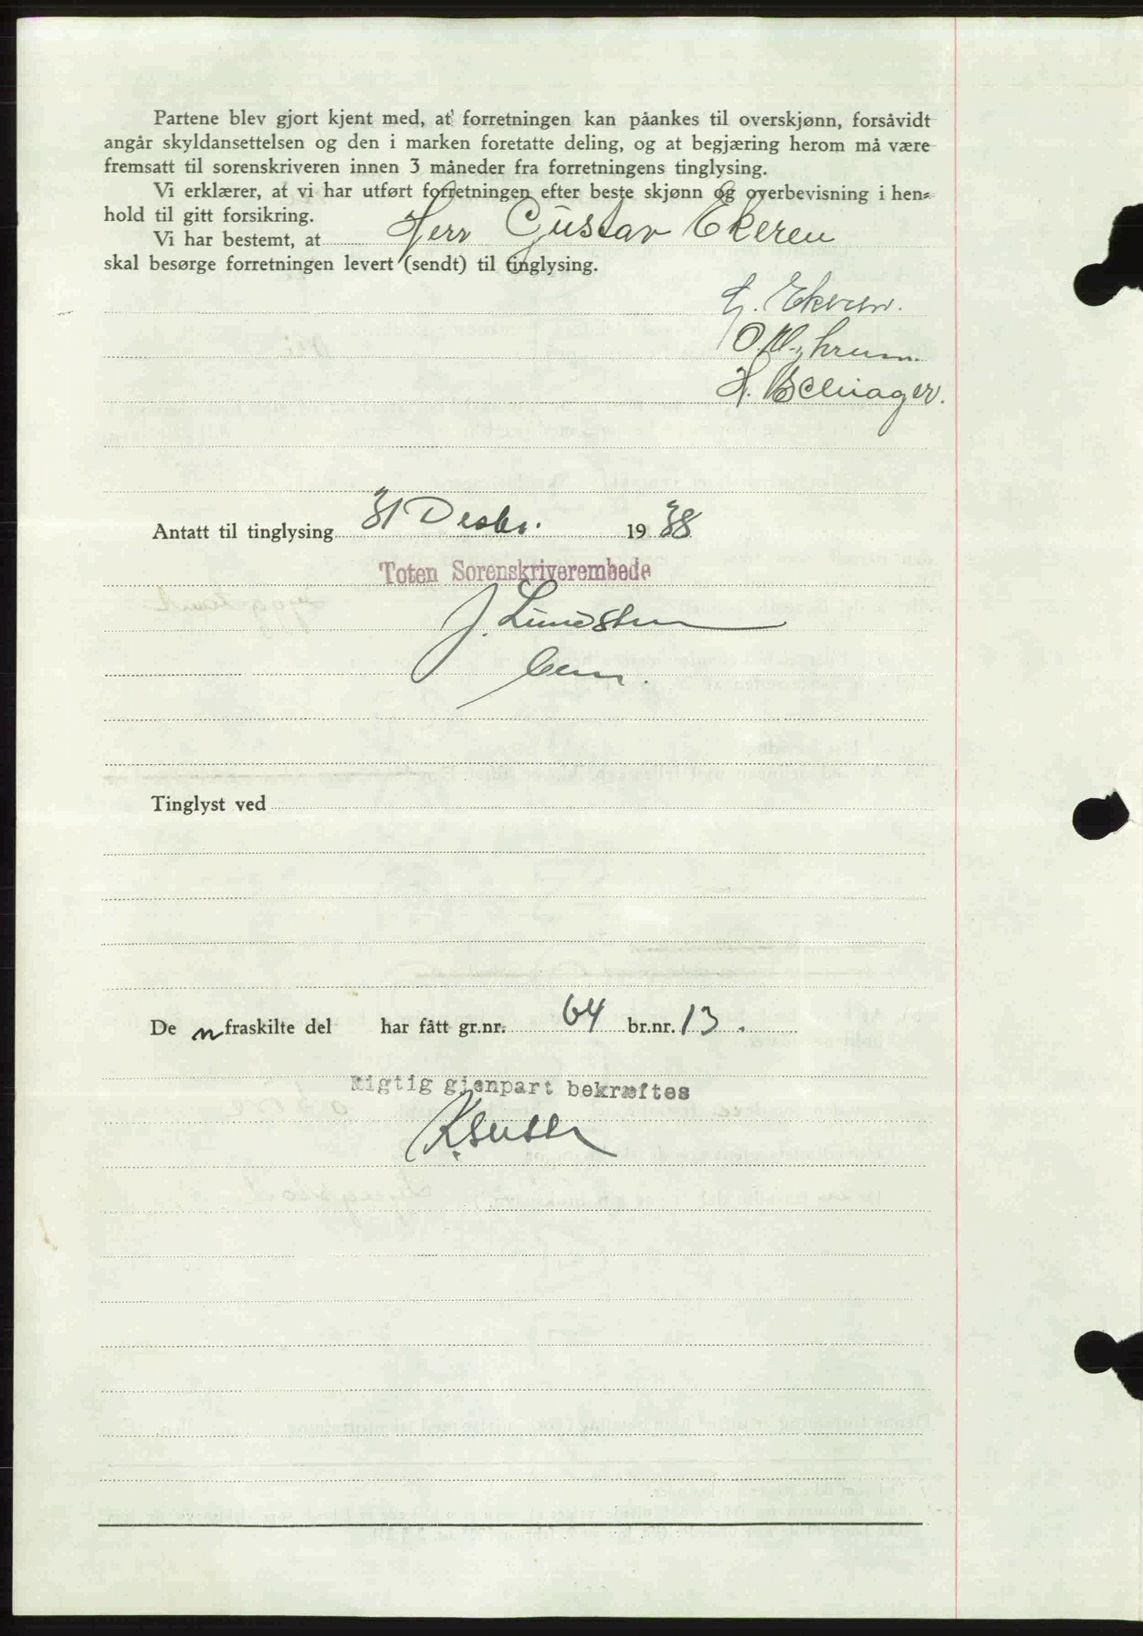 Partene blev gjort kjent med, at forretningen kan påankes til overskjønn, forsåvidt
angår skyldansettelsen og den i marken foretatte deling, og at begjæring herom må være
fremsatt til sorenskriveren innen 3 måneder fra forretningens tinglysing.
Vi erklærer, at vi har utført forretningen efter beste skjønn og overbevisning i hen-
hold til gitt forsikring.
Vi har bestemt, at Herr Gustav Ekeren
skal besørge forretningen levert (sendt) til tinglysing.
G. Ekeren.
H.
Antatt til tinglysing 31 Desbr. 1938
Toten Sorenskriverembede
J. Lundsten
Tinglyst ved
De n fraskilte del har fått gr.nr. 64 br.nr. 13.
Rigtig gjenpart bekræftes